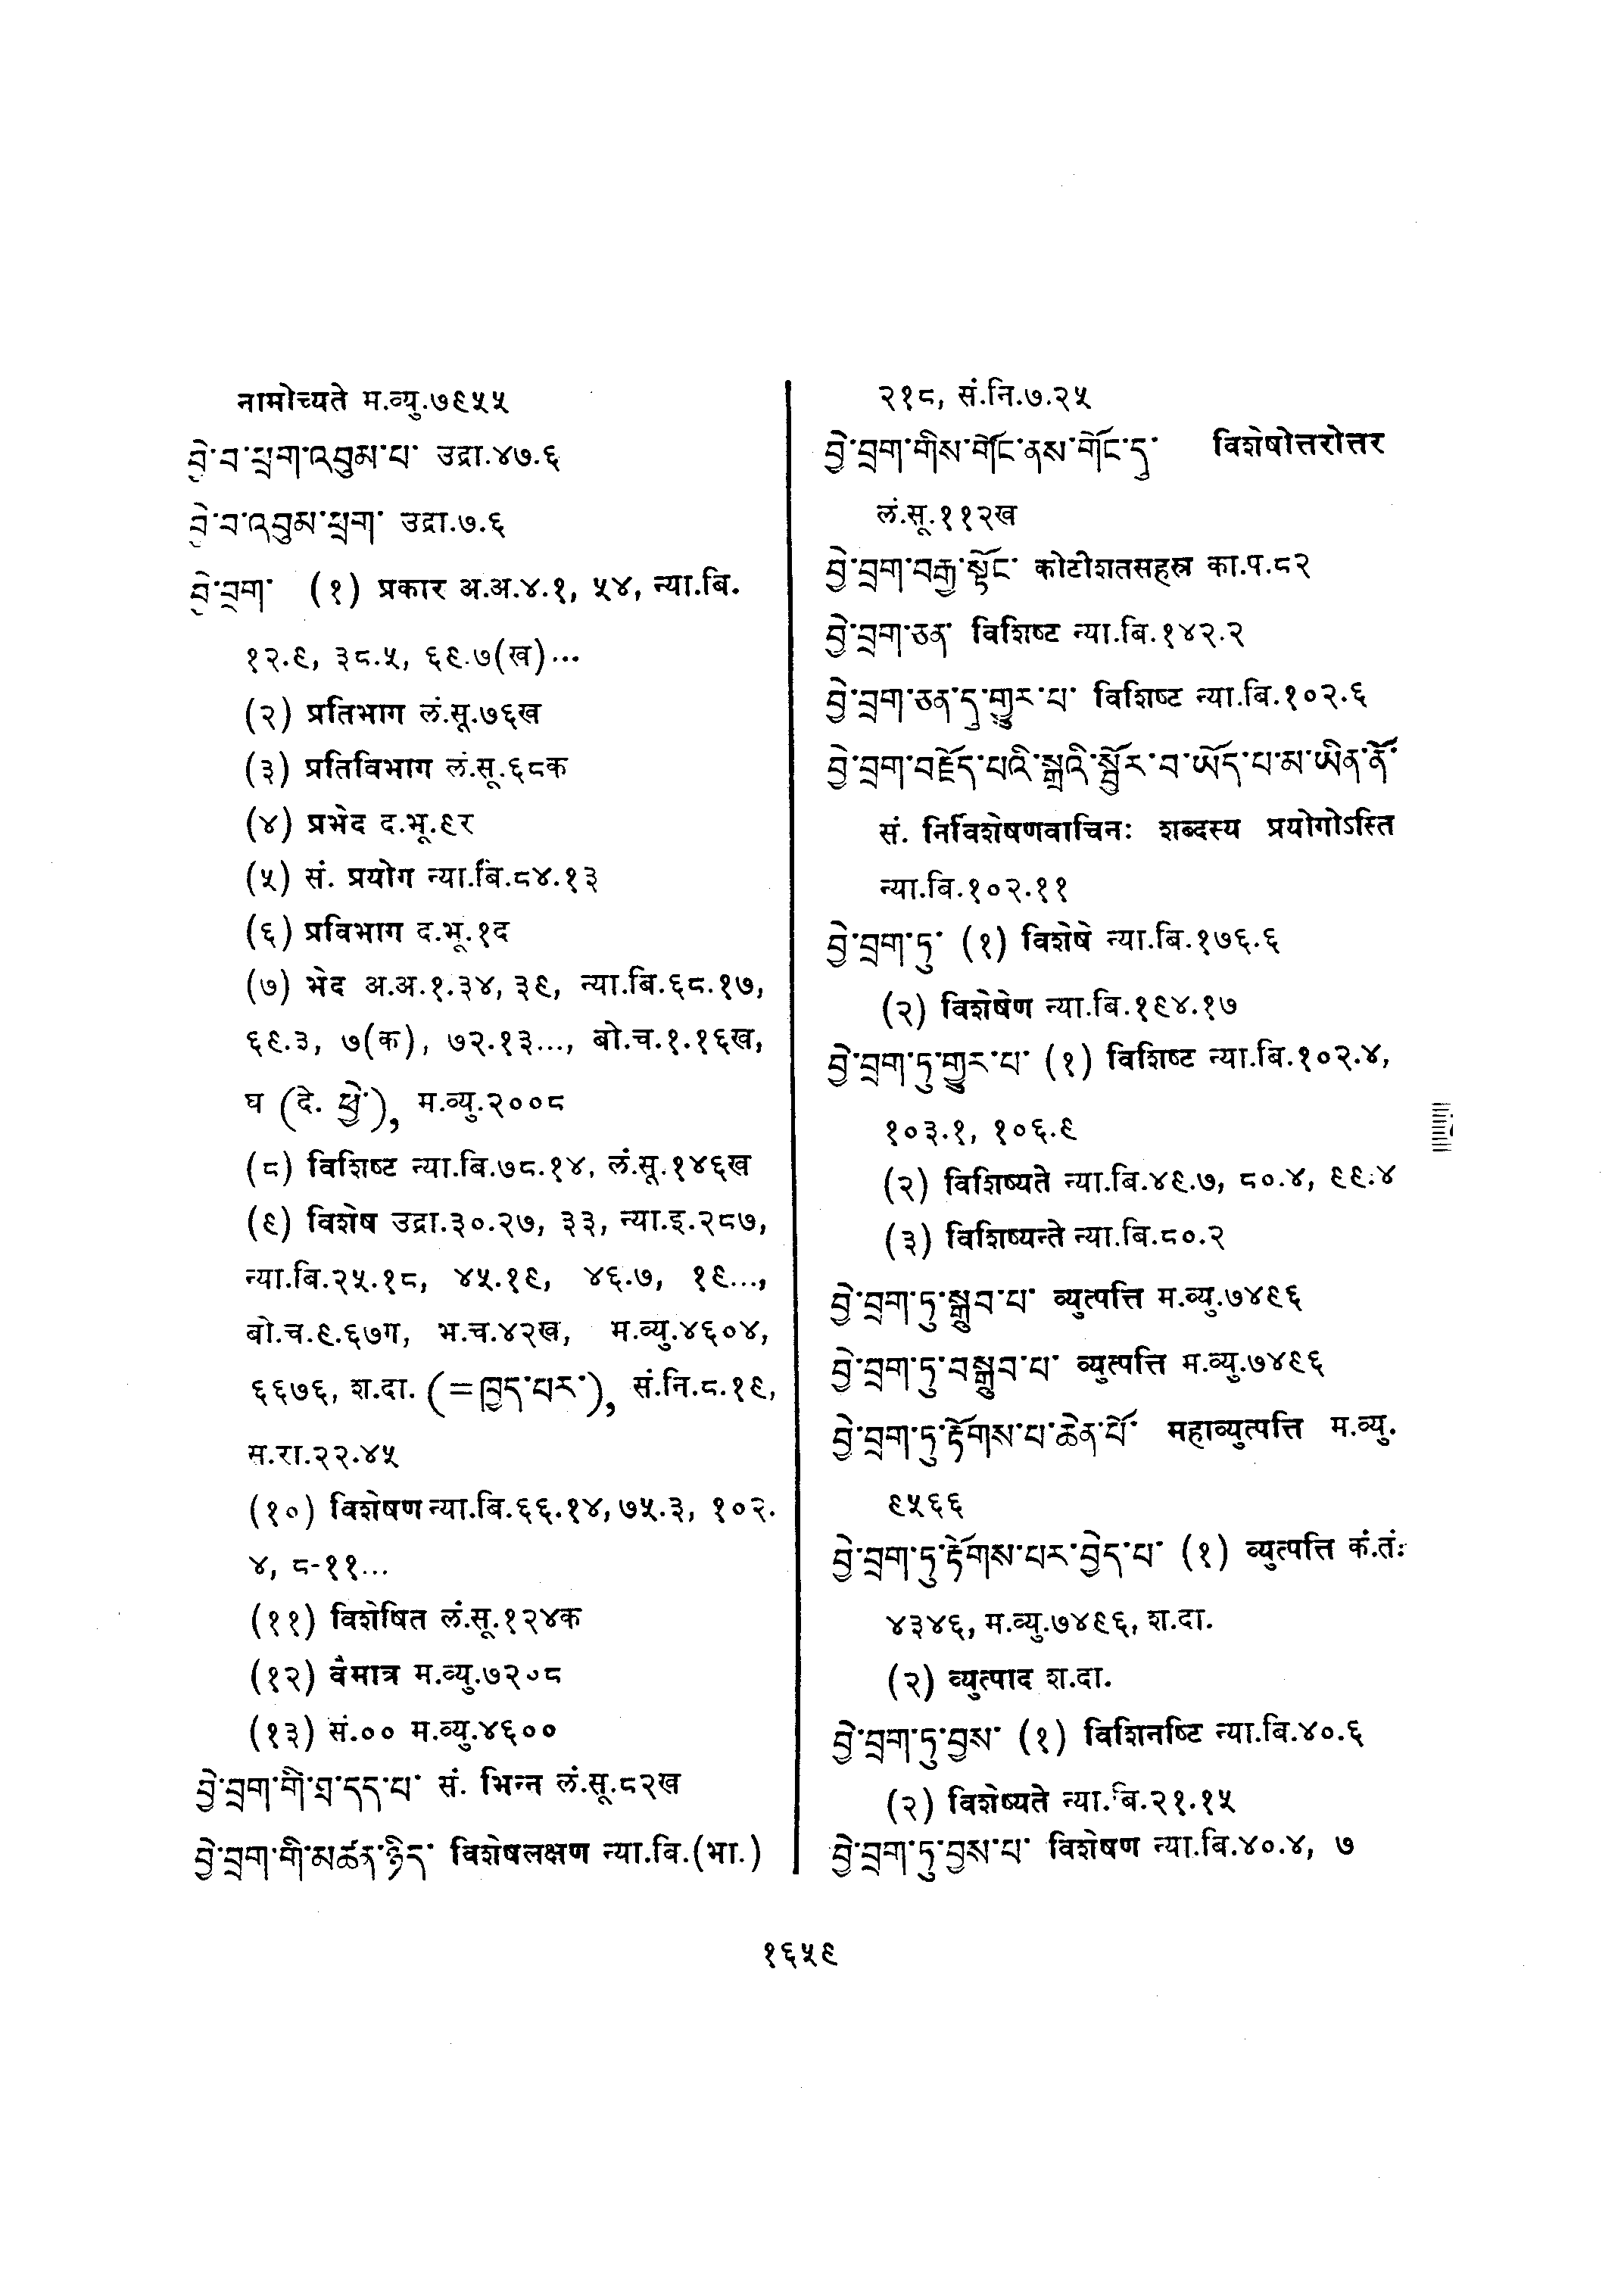 नामोच्यते म.व्यु.७९५५
བྱེ་བ་ཕྲག་འབུམ་པ་ उद्रा.४७.६
བྱེ་བ་འབུམ་ཕྲག་ उद्रा.७.६
བྱེ་བྲག་ (१) प्रकार अ.अ.४.१, ५४, न्या.बि.
१२.९, ३८.५, ६९.७(ख)...
(२) प्रतिभाग लं.सू.७६ख
(३) प्रतिविभाग लं.सू.६८क
(४) प्रभेद द.भू.९र
(५) सं. प्रयोग न्या.बि.८४.१३
(६) प्रविभाग द.भू.१द
(७) भेद अ.अ.१.३४, ३९, न्या.बि.६८.१७,
६९.३, ७(क), ७२.१३..., बो.च.१.१६ख,
घ (दे. ཕྱེ་), म.व्यु.२००८
(८) विशिष्ट न्या.बि.७८.१४, लं.सू.१४६ख
(९) विशेष उद्रा.३०.२७, ३३, न्या.इ.२८७,
न्या.बि.२५.१८, ४५.१९, ४६.७, १९...,
बो.च.९.६७ग, भ.च.४२ख, म.व्यु.४६०४,
६६७६, श.दा. (=ཁྱད་པར་), सं.नि.८.१९,
म.रा.२२.४५
(१०) विशेषण न्या.बि.६६.१४, ७५.३, १०२.
४, ८-११...
(११) विशेषित लं.सू.१२४क
(१२) वैमात्र म.व्यु.७२०८
(१३) सं.०० म.व्यु.४६००
བྱེ་བྲག་གི་ཐ་དད་པ་ सं. भिन्न लं.सू.८२ख
བྱེ་བྲག་གི་མཚན་ཉིད་ विशेषलक्षण न्या.बि.(भा.)
२१८, सं.नि.७.२५
བྱེ་བྲག་གིས་གོང་ནས་གོང་དུ་ विशेषोत्तरोत्तर
लं.सू.११२ख
བྱེ་བྲག་བརྒྱ་སྟོང་ कोटीशतसहस्र का.प.८२
བྱེ་བྲག་ཅན་ विशिष्ट न्या.बि.१४२.२
བྱེ་བྲག་ཅན་དུ་གྱུར་པ་ विशिष्ट न्या.बि.१०२.६
བྱེ་བྲག་བརྗོད་པའི་སྒྲའི་སྦྱོར་བ་ཡོད་པ་མ་ཡིན་ནོ་
सं. निर्विशेषणवाचिनः शब्दस्य प्रयोगोऽस्ति
न्या.बि.१०२.११
བྱེ་བྲག་ཏུ་ (१) विशेषे न्या.बि.१७६.६
(२) विशेषेण न्या.बि.१९४.१७
བྱེ་བྲག་ཏུ་གྱུར་པ་ (१) विशिष्ट न्या.बि.१०२.४,
१०३.१, १०६.९
(२) विशिष्यते न्या.बि.४९.७, ८०.४, ९९.४
(३) विशिष्यन्ते न्या.बि.८०.२
བྱེ་བྲག་ཏུ་སྒྲུབ་པ་ व्युत्पत्ति म.व्यु.७४९६
བྱེ་བྲག་ཏུ་བསྒྲུབ་པ་ व्युत्पत्ति म.व्यु.७४९६
བྱེ་བྲག་ཏུ་རྟོགས་པ་ཆེན་པོ་ महाव्युत्पत्ति म.व्यु.
९५६६
བྱེ་བྲག་ཏུ་རྟོགས་པར་བྱེད་པ་ (१) व्युत्पत्ति कं.तं:
४३४६, म.व्यु.७४९६, श.दा.
(२) व्युत्पाद श.दा.
བྱེ་བྲག་ཏུ་བྱས་ (१) विशिनष्टि न्या.बि.४०.६
(२) विशेष्यते न्या.बि.२१.१५
བྱེ་བྲག་ཏུ་བྱས་པ་ विशेषण न्या.बि.४०.४, ७
१६५९